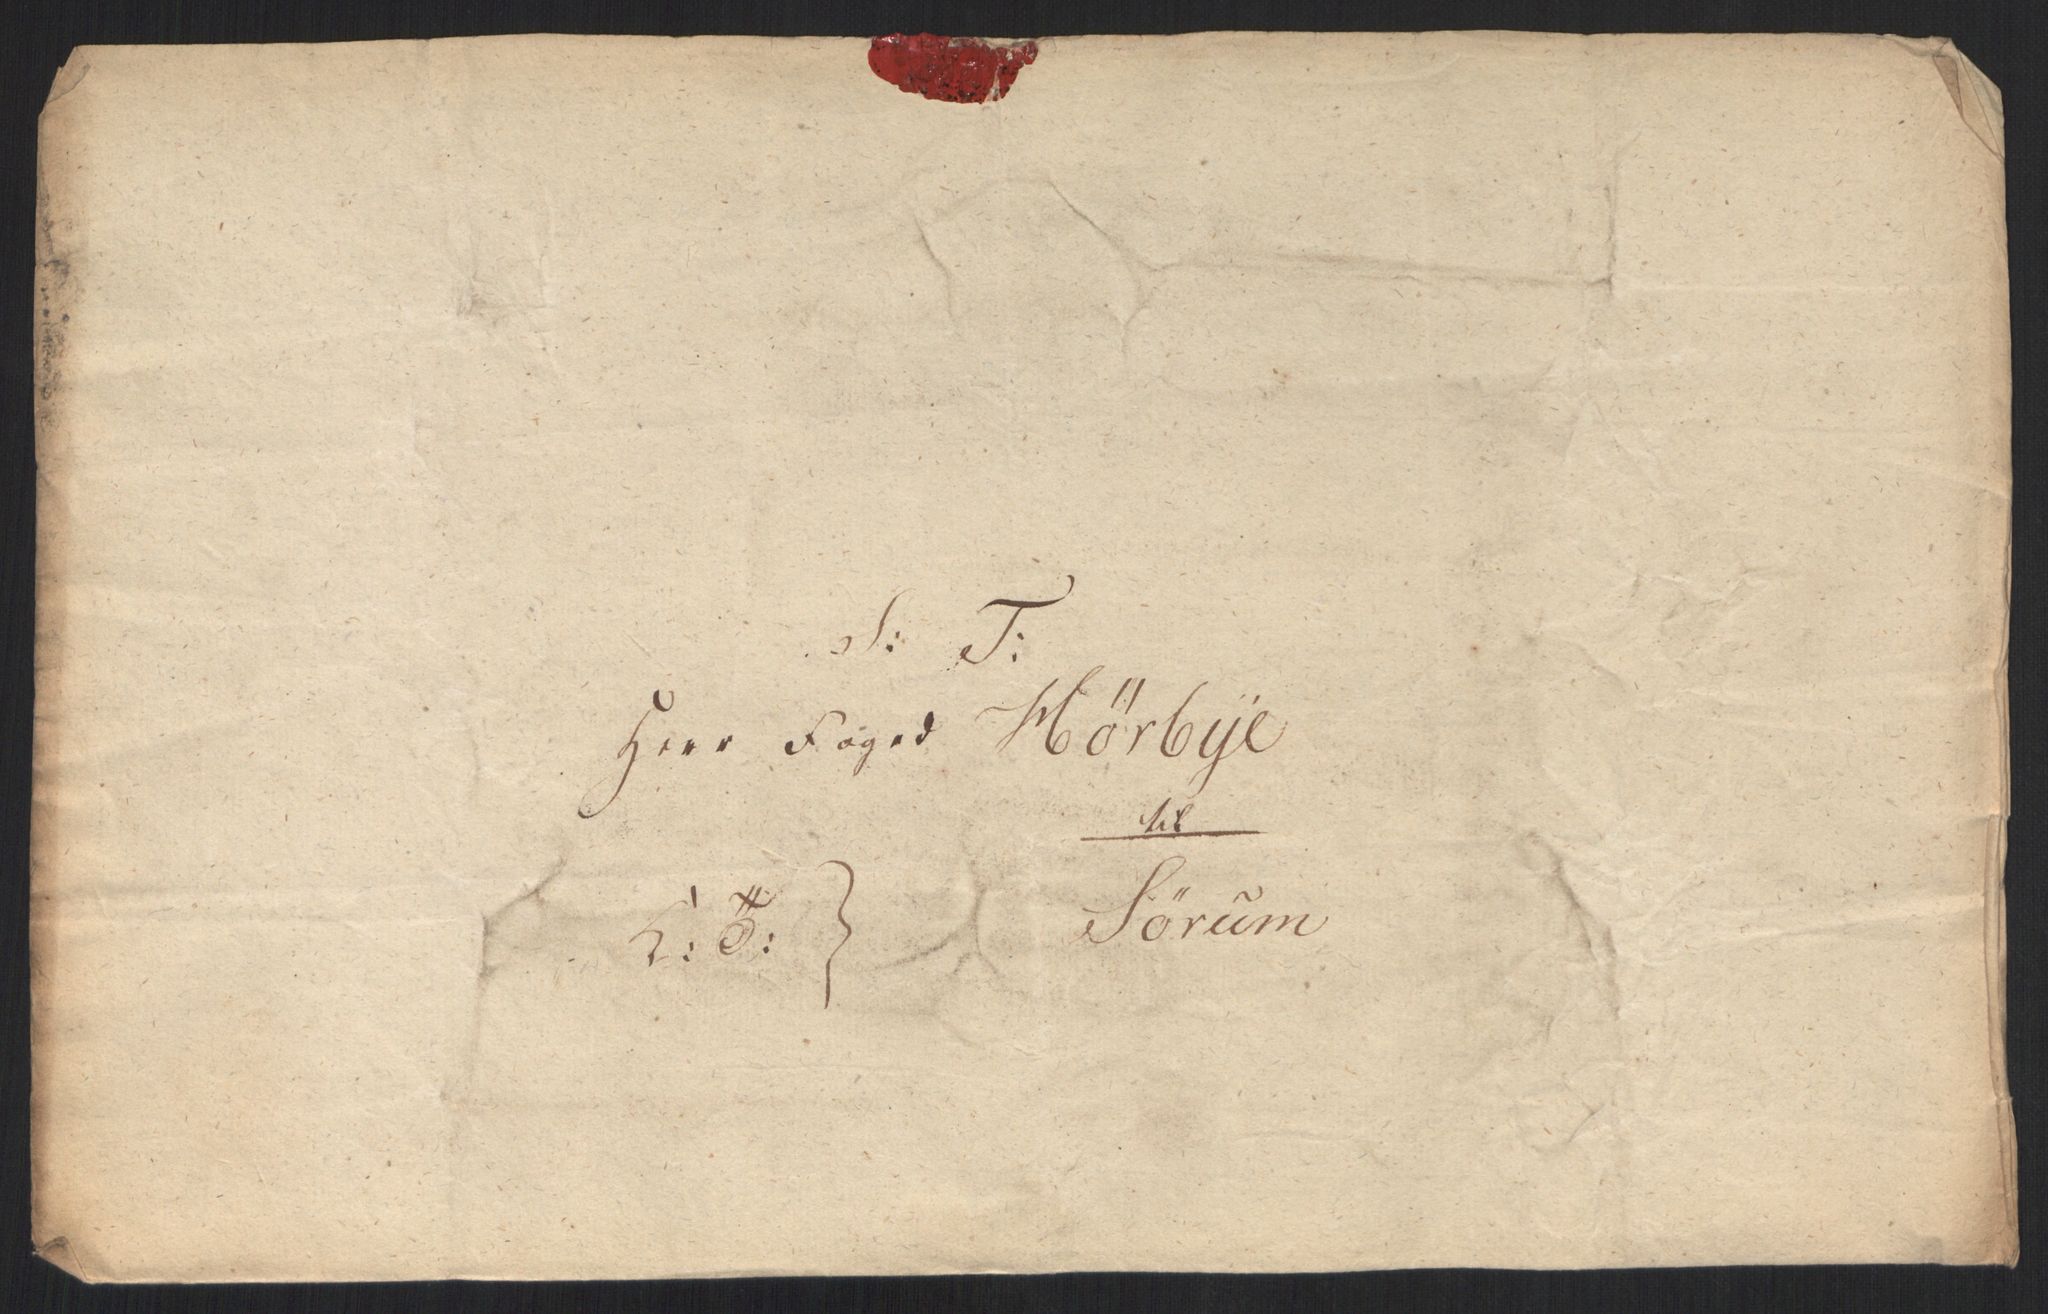 S: T:
Herr Foged Hörbÿe
til
Sörum
K: T: }